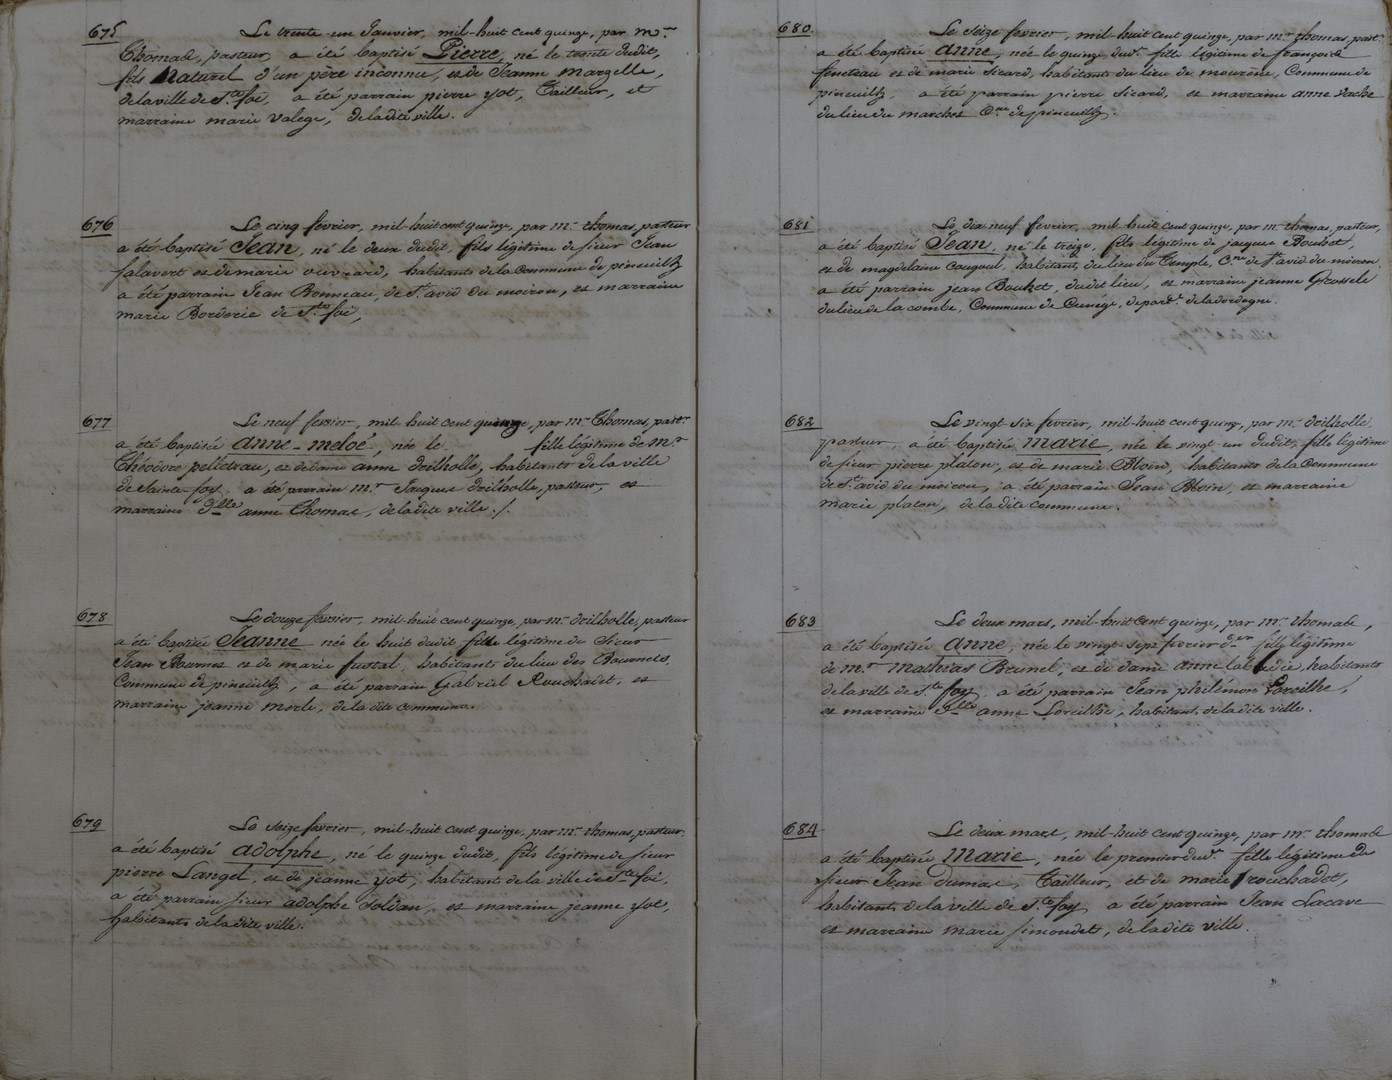 675
Le trente-un Janvier, mil-huit cent quinze, par mr
Thomas, pasteur, a été baptisé Pierre, né le trente dudit,
fils Naturel d'un père inconnu, et de Jeanne Marzelle,
de la ville de Ste foi, a été parrain pierre yot, Tailleur, et
marraine marie Valege, de ladite ville.
676
Le cinq fevrier, mil-huit cent quinze, par mr thomas, pasteur
a été baptisé Jean, né le deux dudit, fils légitime de sieur Jean
falavert et de marie ouvrard, habitants de la Commune de pineuilh
a été parrain Jean Bonneau, de St avid du moiron, et marraine
marie Borderie de Ste foi,
677
Le neuf fevrier, mil huit cent quinze, par mr Thomas, pastr
a été baptisée anne-meloé, née le fille légitime de Mr
Théodore pelletrau, et de dame anne drilholle, habitants de la ville
de Sainte-foy, a été parrain Mr Jacques drilholle, pasteur, et
marraine dlle anne Thomas, de la dite ville ./.
678
Le douze fevrier, mil-huit cent quinze, par mr drilholle, pasteur
a été baptisée Jeanne née le huit dudit fille légitime de Sieur
Jean et de marie fustal, habitants du lieu des
Commune de pineuilh, a été parrain Gabriel Rouchadet, et
marraine jeanne merle, de la dite commune.
679
Le Seize fevrier, mil-huit cent quinze, par mr thomas, pasteur
a été baptisé adolphe, né le quinze dudit, fils légitime de sieur
pierre Langel, et de jeanne yot, habitant de la ville de Ste foi,
a été parrain sieur adolphe Soldan, et marraine jeanne yot,
habitants de la dite ville.
680
Le Seize fevrier, mil-huit cent quinze, par mr thomas, pastr
a été baptisée anne, née le quinze dudt fille légitime de françois
feneteau et de marie Sicard, habitants du lieu de mourène, Commune de
pineuilh, a été parrain pierre Sicard, et marraine anne vache
du lieu du marchet Cne de pineuilh.
681
Le dix neuf fevrier, mil huit cent quinze, par mr thomas, pasteur,
a été baptisé Jean, né le treize, fils légitime de jacques Bouhet,
et de magdelaine Cougoul, habitant du lieu du Temple, Cne de St avid du moiron
a été parrain jean Bouhet, dudit lieu, et marraine jeanne
du lieu de la combe, Commune de Cunége, depart. de la dordogne.
682
Le vingt six fevrier, mil-huit cent quinze, par mr drilholle
pasteur, a été baptisée marie, née le vingt un dudit, fille légitime
de sieur pierre platon, et de marie Bloin, habitants de la Commune
de St avid du moiron, a été parrain Jean Bloin, et marraine
marie platon, de la dite commune.
683
Le deux mars, mil-huit Cent quinze, par mr thomas,
a été baptisée anne, née le vingt sept fevrier der fille légitime
de mr mathias Brunel, et de dame anne labadie, habitants
de la ville de Ste foy, a été parrain Jean philémon Loreilhe,
et marraine dlle anne Loreilhe, habitant de la dite ville.
684
Le deux mars, mil-huit cent quinze, par mr thomas
a été baptisée Marie, née le premier dudt fille légitime de
sieur Jean dumas, Tailleur, et de marie rouchadet,
habitant de la ville de Ste foy a été parrain Jean Lacave
et marraine marie simondet, de la dite ville.